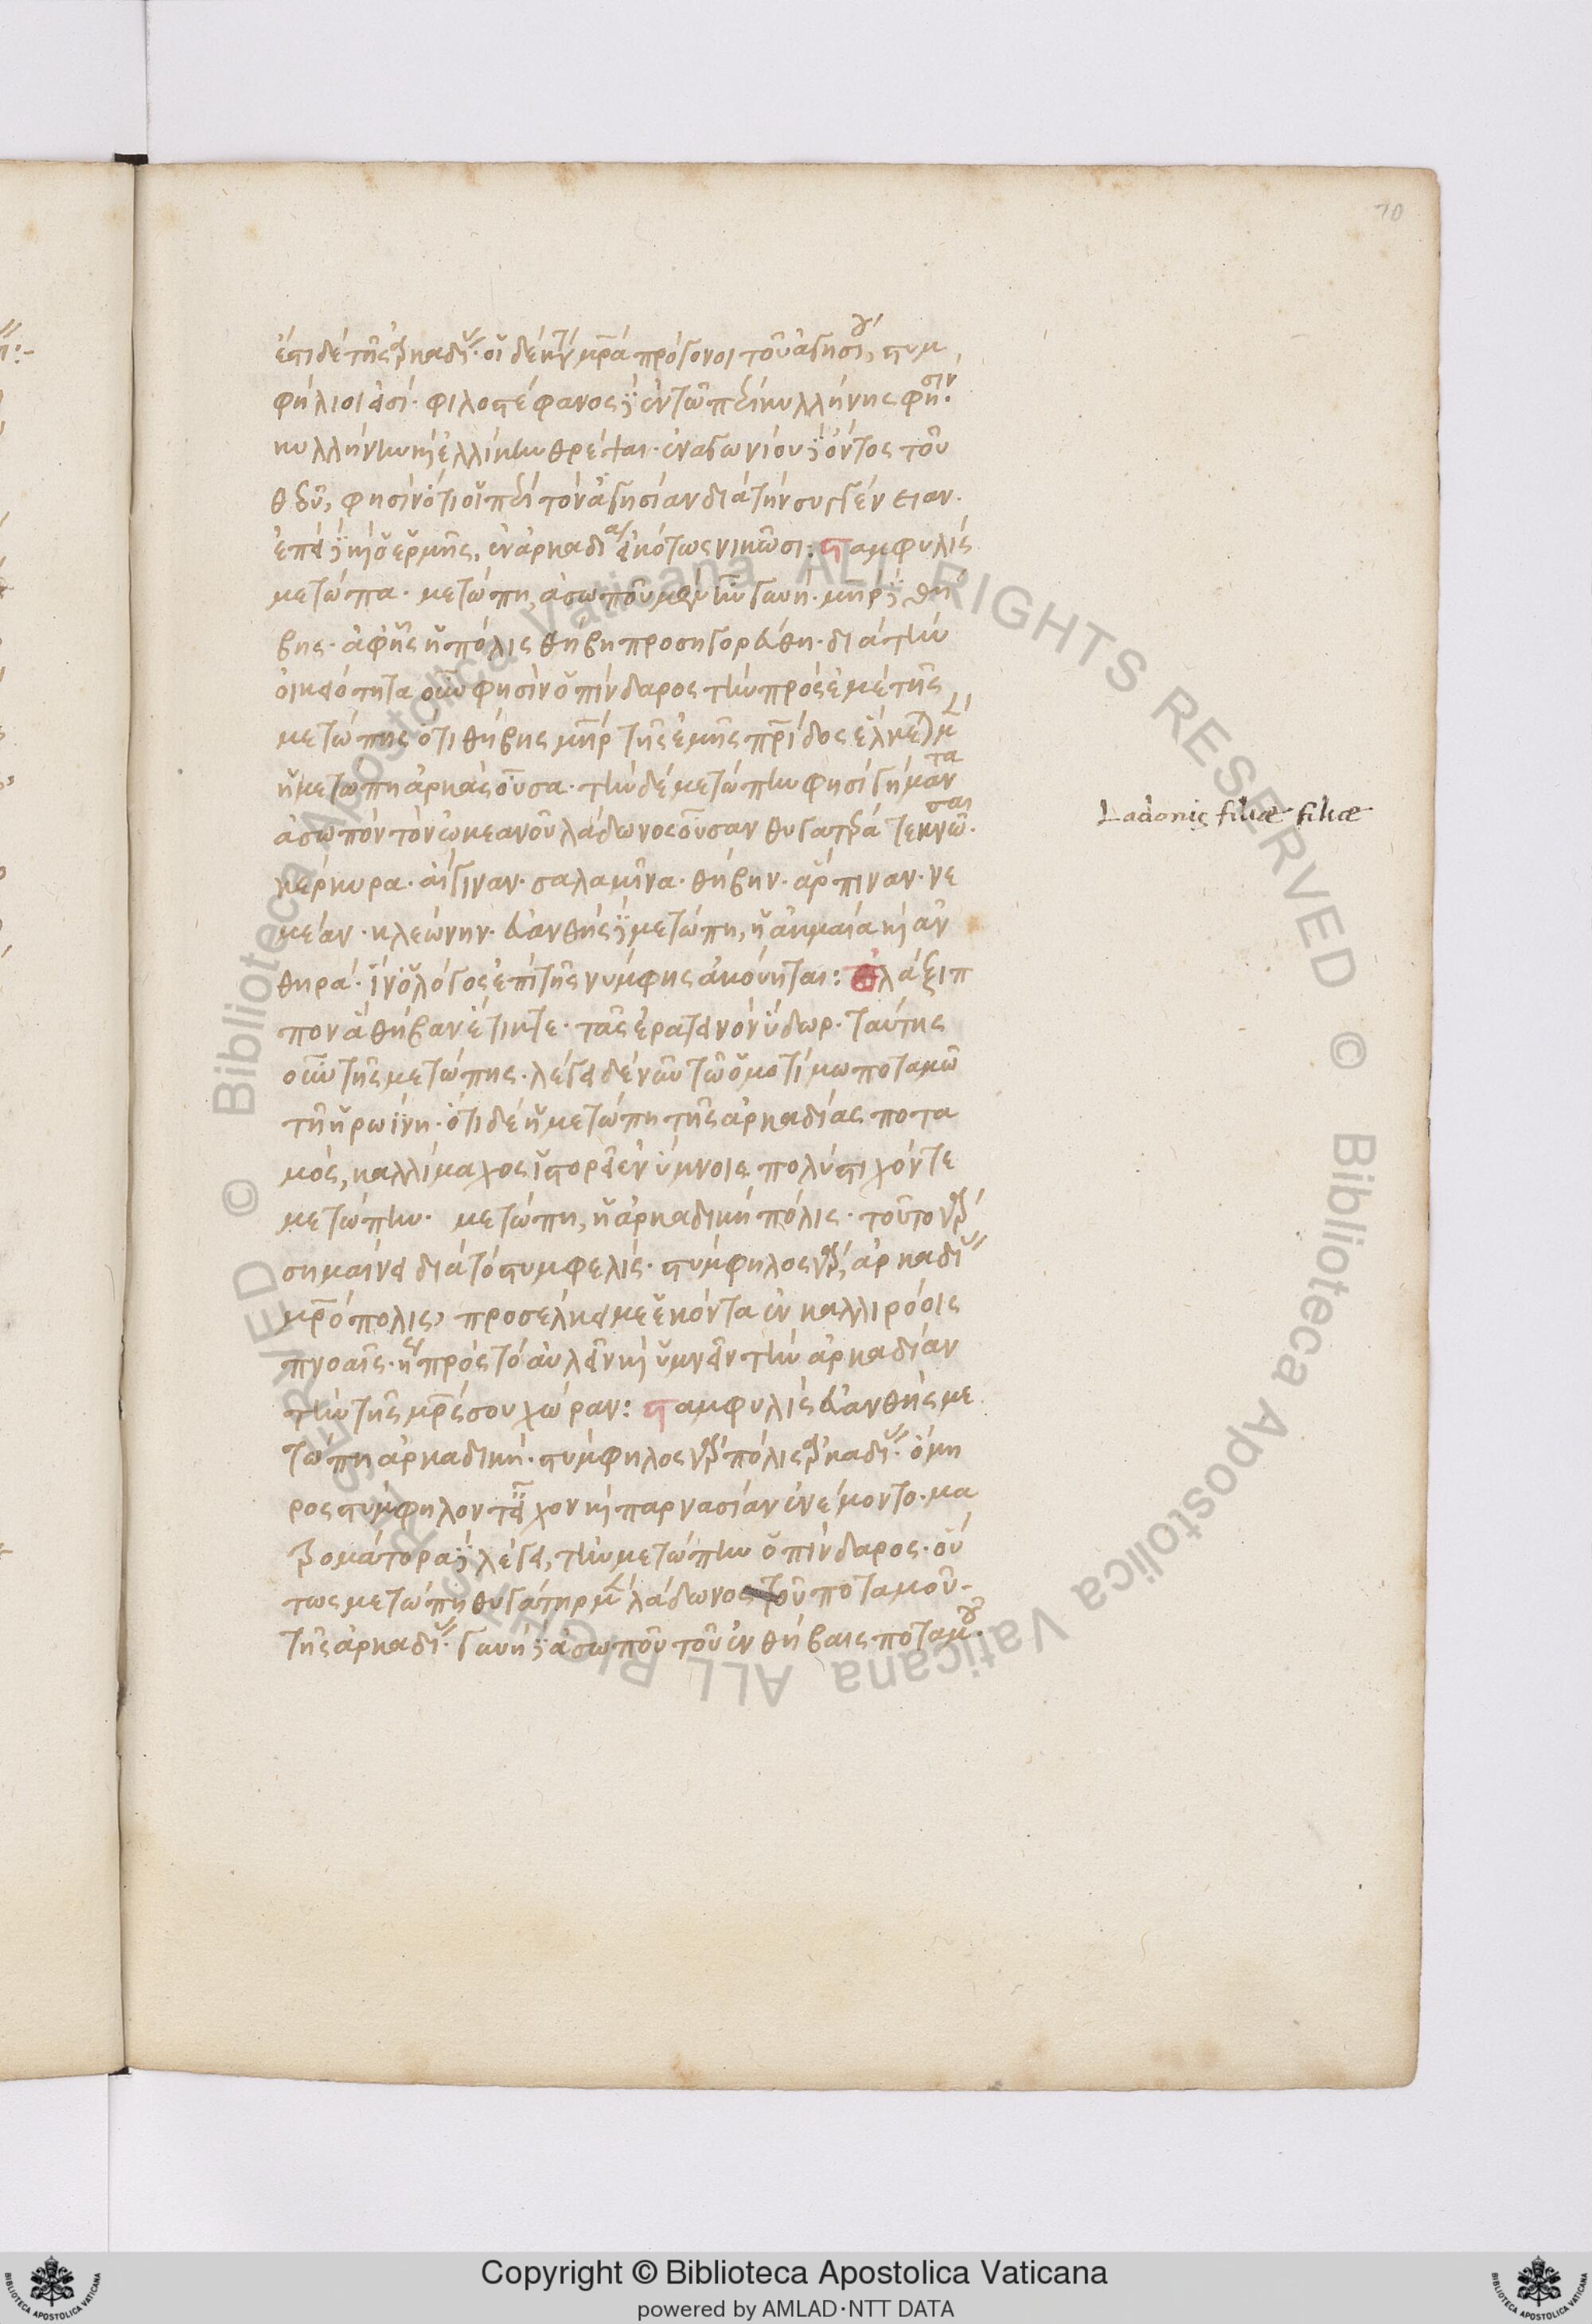 70
ἐστι δὲ τῆς ἀρκαδίας· οἱ δὲ κατὰ μητέρα πρόγονοι τοῦ ἀγησίου, στυμ
φήλιοι εἰσί· φιλοστέφανος δὲ ἐν τῶ περὶ κυλλήνης φησίν·
κυλλήνην καὶ ἑλλίκην θρέψαι· ἐναγωνίου δὲ ὄντος τοῦ
θεοῦ, φησὶν ὅτι οἱ περὶ τὸν ἀγησίαν διὰ τὴν συγγένειαν·
ἐπεὶ δὲ καὶ ὁ ἑρμῆς, ἐν ἀρκαδία εἰκότως νικῶσι: σταμφυλὶς
μετώπα· μετώπη, ἀσωποῦ μὲν ἦν γυνή· μήτηρ δὲ θή
βης· ἀφ' ἧς ἡ πόλις θήβη προσηγορεύθη· διὰ τὴν
οἰκειότητα οὖν φησὶν ὁ πίνδαρος τὴν πρὸς ἐμὲ τῆς
μετώπης ὅτι θήβης μήτηρ τῆς ἐμῆς πατρίδος ἕλκεται
ἡ μετώπη ἀρκὰς οὖσα· τὴν δὲ μετώπην φησὶ γήμαντα
ἀσωπὸν τὸν ὠκεανοῦ λάδωνος οὖσαν θυγατέρα τεκνῶσαι·
κέρκυρα· αἴγιναν· σαλαμῖνα· θήβην· ἅρπιναν· νε
μέαν· κλεώνην· εὐανθὴς δὲ μετώπη, ἡ ἀκμαία καὶ ἀν
θηρά· ἵν' ὁ λόγος ἐπὶ τῆς νύμφης ἀκούηται: πλάξιπ
πον ἃ θήβαν ἔτικτε· τᾶς ἐρατεινὸν ὕδωρ· ταύτης
οὖν τῆς μετώπης· λέγει δὲ νῦν τῶ ὁμοτίμω ποταμῶ
τῆ ἡρωίνη· ὅτι δὲ ἡ μετώπη τῆς ἀρκαδίας ποτα
μὸς, καλλίμαχος ἱστορεῖ ἐν ὕμνοις πολύστιχόν τε
μετώπην· μετώπη, ἡ ἀρκαδικὴ πόλις· τοῦτο γὰρ
σημαίνει διὰ τὸ στυμφελίς· στύμφηλος γὰρ, ἀρκαδίας
μητρόπολις, προσέλκει με ἑκόντα ἐν καλλιρόοις
πνοαῖς· ἢ πρὸς τὸ αὐλεῖν καὶ ὑμνεῖν τὴν ἀρκαδίαν
τὴν τῆς μητρός σου χώραν: σταμφυλὶς εὐανθὴς με
τώπη ἀρκαδική· στύμφηλος γὰρ πόλις ἀρκαδίας· ὅμη
ρος στύμφηλόν τ' εἶχον καὶ παρνασίαν ἐνέμοντο· μα
τρομάτορα δὲ λέγει, τὴν μετώπην ὁ πίνδαρος· οὕ
τως μετώπη θυγάτηρ μὲν λάδωνος τοῦ ποταμοῦ
τῆς ἀρκαδίας· γυνὴ δὲ ἀσωποῦ τοῦ ἐν θήβαις ποταμοῦ·
Ladonis filiae filiae
© Biblioteca Apostolica Vaticana ALL RIGHTS RESERVED
© Biblioteca Apostolica Vaticana ALL RIGHTS RESERVED
Copyright © Biblioteca Apostolica Vaticana
powered by AMLAD·NTT DATA
BIBLIOTECA APOSTOLICA VATICANA
BIBLIOTECA APOSTOLICA VATICANA